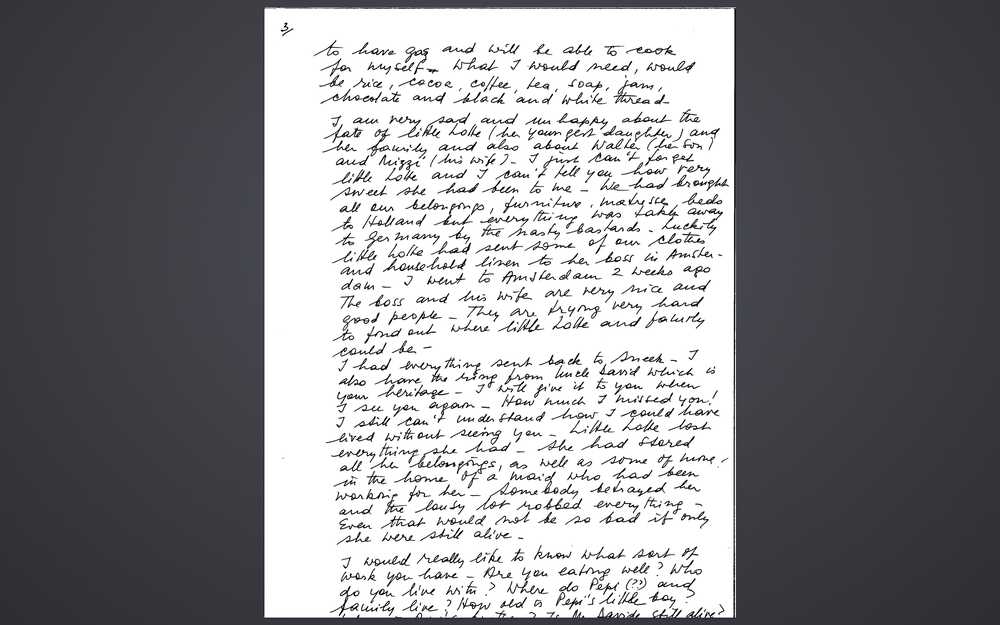 3/
to have gas and will be able to cook
for myself – What I would need, would
be rice, cocoa, coffee, tea, soap, jam,
chocolate and black and white thread –
I am very sad and unhappy about the
fate of little Lotte (her youngest daughter) and
her family and also about Walter (her son)
and Mizzi (his wife) – I just can't forget
little Lotte and I can't tell you how very
sweet she had been to me – We had brought
all our belongings, furniture, matresses, beds
to Holland but everything was taken away
to Germany by the nasty bastards – Luckily
little Lotte had sent some of our clothes
and household linen to her boss in Amster-
dam – I went to Amsterdam 2 weeks ago
The boss and his wife are very nice and
good people – They are trying very hard
to find out where little Lotte and family
could be –
I had everything sent back to Sneek – I
also have the ring from Uncle David which is
your heritage – I will give it to you when
I see you again – How much I missed you!
I still can't understand how I could have
lived without seeing you – Little Lotte lost
everything she had – She had stored
all her belongings, as well as some of mine,
in the home of a maid who had been
working for her – Somebody betrayed her
and the lousy lot robbed everything –
Even that would not be so bad if only
she were still alive –
I would really like to know what sort of
work you have – Are you eating well? Who
do you live with? Where do Pepi (??) and
family live? How old is Pepi's little boy?
still alive?